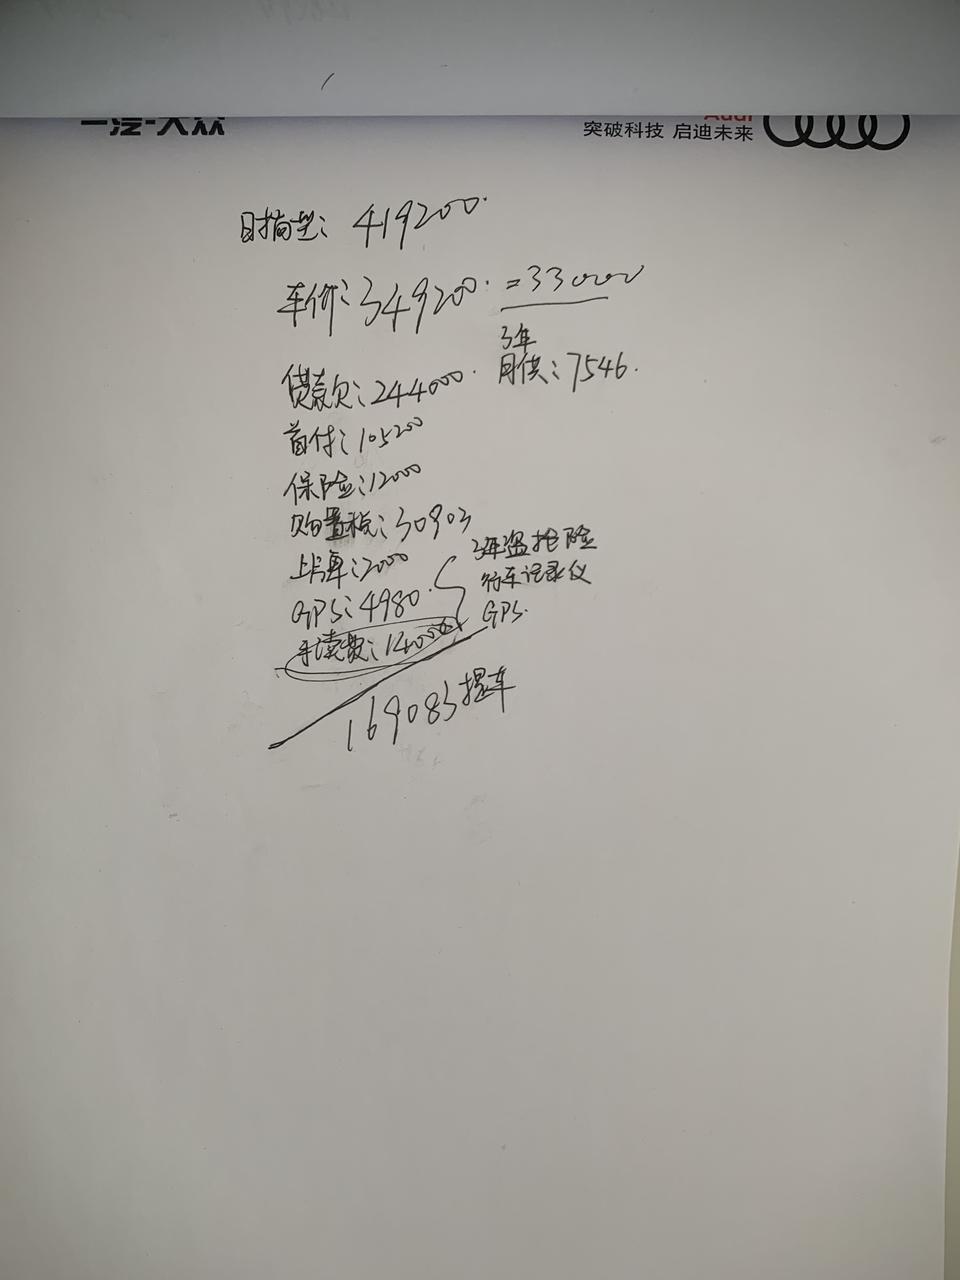 一汽-大众
Audi
突破科技 启迪未来
时尚型：419200.
车价：349200. =33000
3年
贷款：244000. 月供：7546.
首付：105200
保险：12000
购置税：30903
上牌：2000
3年盗抢险
行车记录仪
GPS：4980. GPS.
手续费：14000
169083提车